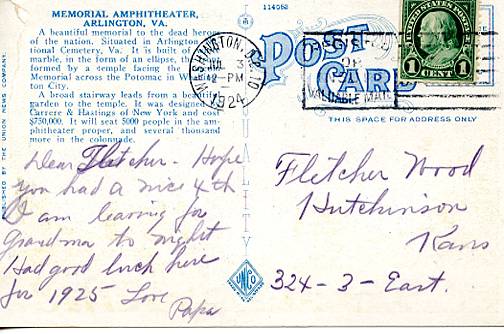 114058
MEMORIAL AMPHITHEATER,
ARLINGTON, VA.
A beautiful memorial to the dead heroes
of the nation. Situated in Arlington
tional Cemetery, Va. It is built of
marble, in the form of an ellipse,
formed by a temple facing the
Memorial across the Potomac in
ton City.
A broad stairway leads from a beautiful
garden to the temple. It was designed
Carrere & Hastings of New York and cost
$750,000. It will seat 5000 people in the am-
phitheater proper, and several thousand
more in the colonnade.
PUBLISHED BY THE UNION NEWS COMPANY
WASHINGTON, D.C.
JUL 3
12-PM
1924
POST CARD
REGISTER
OR
VALUABLE MAIL
UNITED STATES POSTAGE
1 CENT 1
THIS SPACE FOR ADDRESS ONLY
Dear Fletcher - Hope
you had a nice 4th
I am leaving for
Grandma to night
Had good luck here
for 1925 Love
Papa
UNCO
Fletcher Wood
Hutchinson
Kans
324-3-East.